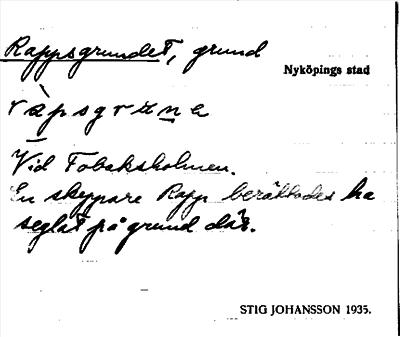 Rappsgrundet, grund
Nyköpings stad
Vid Tobaksholmen.
En skeppare Rapp berättades ha
seglat på grund där.
STIG JOHANSSON 1935.